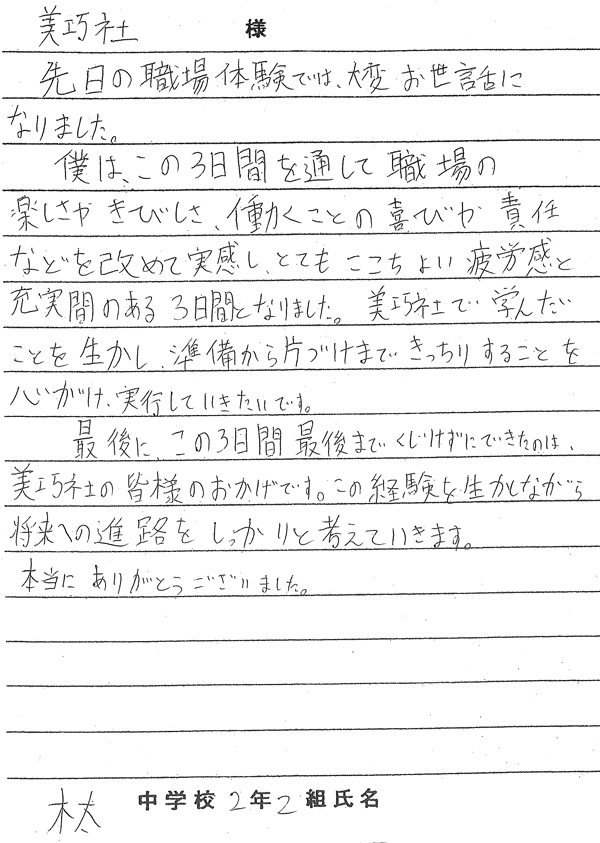 美巧社 様
先日の職場体験では、大変お世話に
なりました。
僕は、この3日間を通して職場の
楽しさやきびしさ、働くことの喜びや責任
などを改めて実感し、とてもここちよい疲労感と
充実間のある3日間となりました。美巧社で学んだ
ことを生かし、準備から片づけまできっちりすることを
心がけ、実行していきたいです。
最後に、この3日間最後までくじけずにできたのは、
美巧社の皆様のおかげです。この経験を生かしながら
将来への進路をしっかりと考えていきます。
本当にありがとうございました。
中学校2年2組氏名